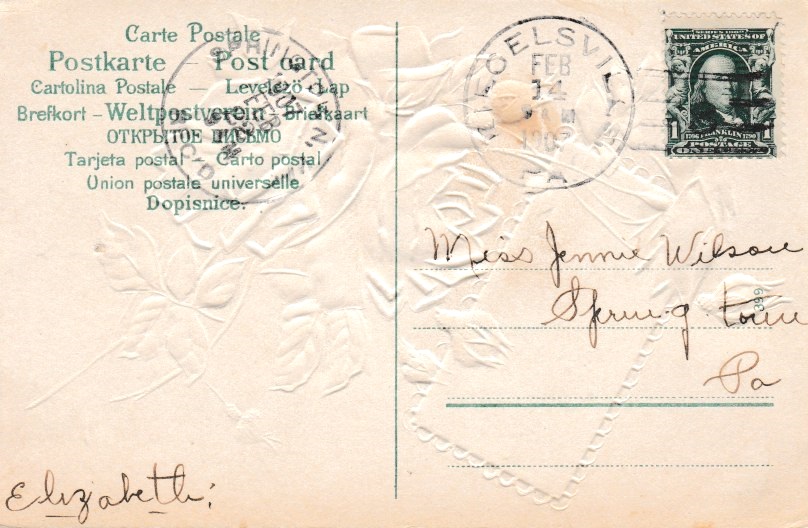 Carte Postale
Postkarte — Post card
Cartolina Postale — Levelező-Lap
Brefkort - Weltpostverein - Briefkaart
ОТКРЫТОЕ ПИСЬМО
Tarjeta postal Carto postal
Union postale universelle
Dopisnice.
REC'D
FEB
RIEGELSVILLE
FEB
14
PA
SERIES 1902
UNITED STATES OF
AMERICA
1 1706 FRANKLIN 1790 1
POSTAGE
ONE CENT
Miss Jennie Wilson
Spring town
Pa
399
Elizabeth: